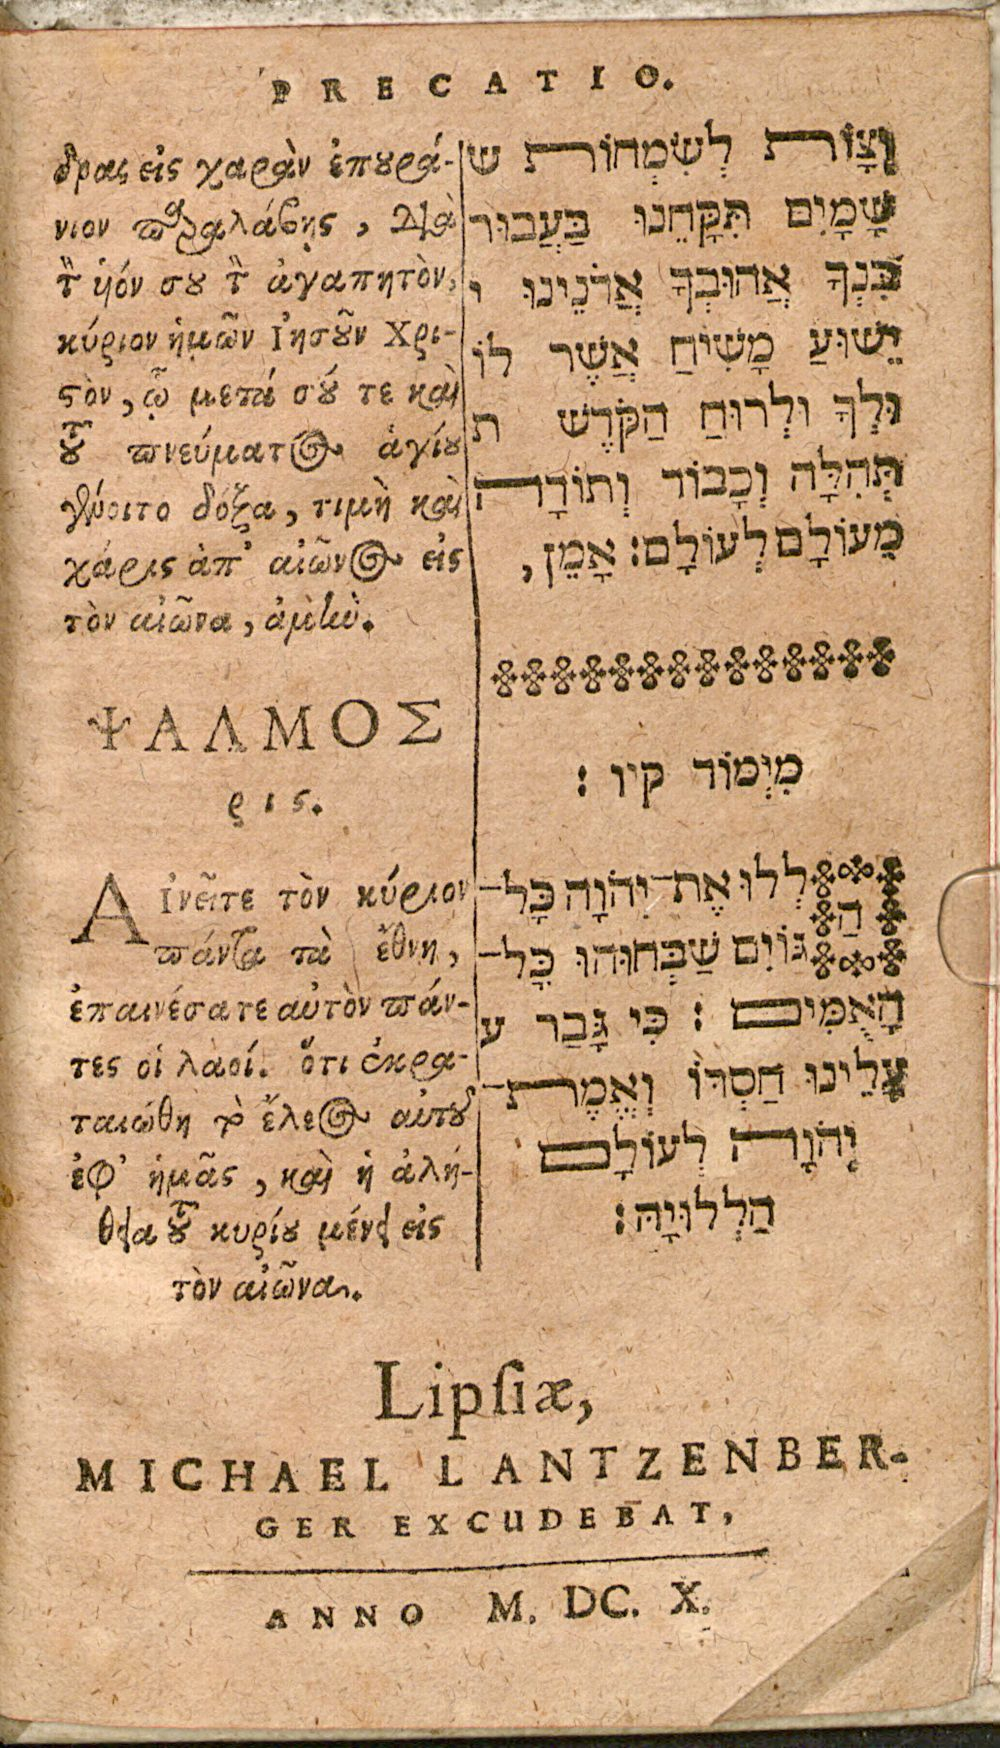 PRECATIO.
δρας εἰς χαρὰν ἐπουρά-
νιον παραλάβῃς, διὰ
τὸν υἱόν σου τὸν ἀγαπητὸν,
κύριον ἡμῶν Ἰησοῦν Χρι-
στὸν, ᾧ μετά σού τε καὶ
τοῦ πνεύματος ἁγίου
γένοιτο δόξα, τιμὴ καὶ
χάρις ἀπ' αἰῶνος εἰς
τὸν αἰῶνα, ἀμήν.
ΨΑΛΜΟΣ
ρις.
ΑἰνεῖΤε τὸν κύριον
πάντα τὰ ἔθνη,
ἐπαινέσατε αὐτὸν πάν-
τες οἱ λαοί. ὅτι ἐκρα-
ταιώθη τὸ ἔλεος αὐτοῦ
ἐφ' ἡμᾶς, καὶ ἡ ἀλή-
θεια τοῦ κυρίου μένει εἰς
τὸν αἰῶνα.
וְצָוֹת לְשִׂמְחוֹת ש
שָׁמָיִם תִּקָּחֵנוּ בַּעֲבוּר
בִּנְךָ אֲהוּבְךָ אֲדֹנֵינוּ י
יֵשׁוּעַ מָשִׁיחַ אֲשֶׁר לוֹ
וּלְךָ וּלְרוּחַ הַקֹּדֶשׁ ת
תְּהִלָּה וְכָבוֹד וְתוֹדָה
מֵעוֹלָם לְעוֹלָם: אָמֵן,
מִיְמוֹר קיו :
הַלְלוּ אֶת־יְהֹוָה כָּל־
גּוֹיִם שַׁבְּחוּהוּ כָּל־
הָאֻמִּים : כִּי גָּבַר ע
עָלֵינוּ חַסְדּוֹ וְאֱמֶת־
יְהֹוָה לְעוֹלָם
הַלְלוּיָהּ:
Lipsiæ,
MICHAEL LANTZENBER-
GER EXCUDEBAT,
ANNO M. DC. X.